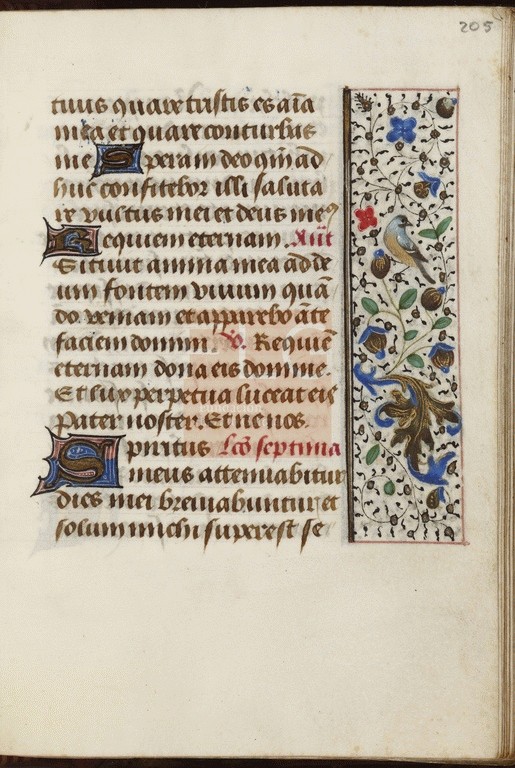 205
tuus quare tristis es aīa
mea et quare conturbas
me Spera in deo qm̄ ad
huc confitebor illi saluta
re vultus mei et deus meꝰ
Requiem eternam. Ant̄
Sitiuit anima mea ad de
um fontem viuum quā
do veniam et apparebo āte
faciem domini. Vo. Requiē
eternam dona eis domine.
Et lux perpetua luceat eis
Pater noster. Et ne nos.
Spiritus Lco septima
meus attenuabitur
dies mei breuiabuntur et
solum michi superest se